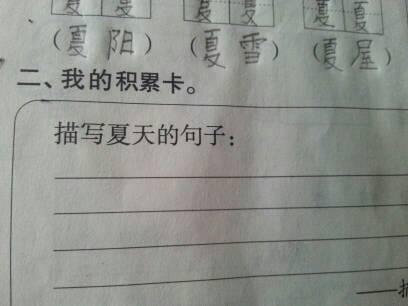 夏 夏 夏 夏 夏 夏
（夏阳） （夏雪） （夏屋）
二、我的积累卡。
描写夏天的句子：
——